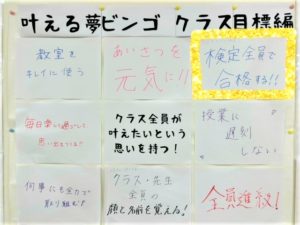 叶える夢ビンゴ クラス目標編
教室を
キレイに使う
あいさつを
元気に!!
検定全員で
合格する!!
毎日楽しく過ごして
思い出をつくる!
クラス全員が
叶えたいという
思いを持つ!
授業に
遅刻
しない
何事にも全力で
取り組む!
クラス・先生
全員の
顔と名前を覚える!
全員進級!